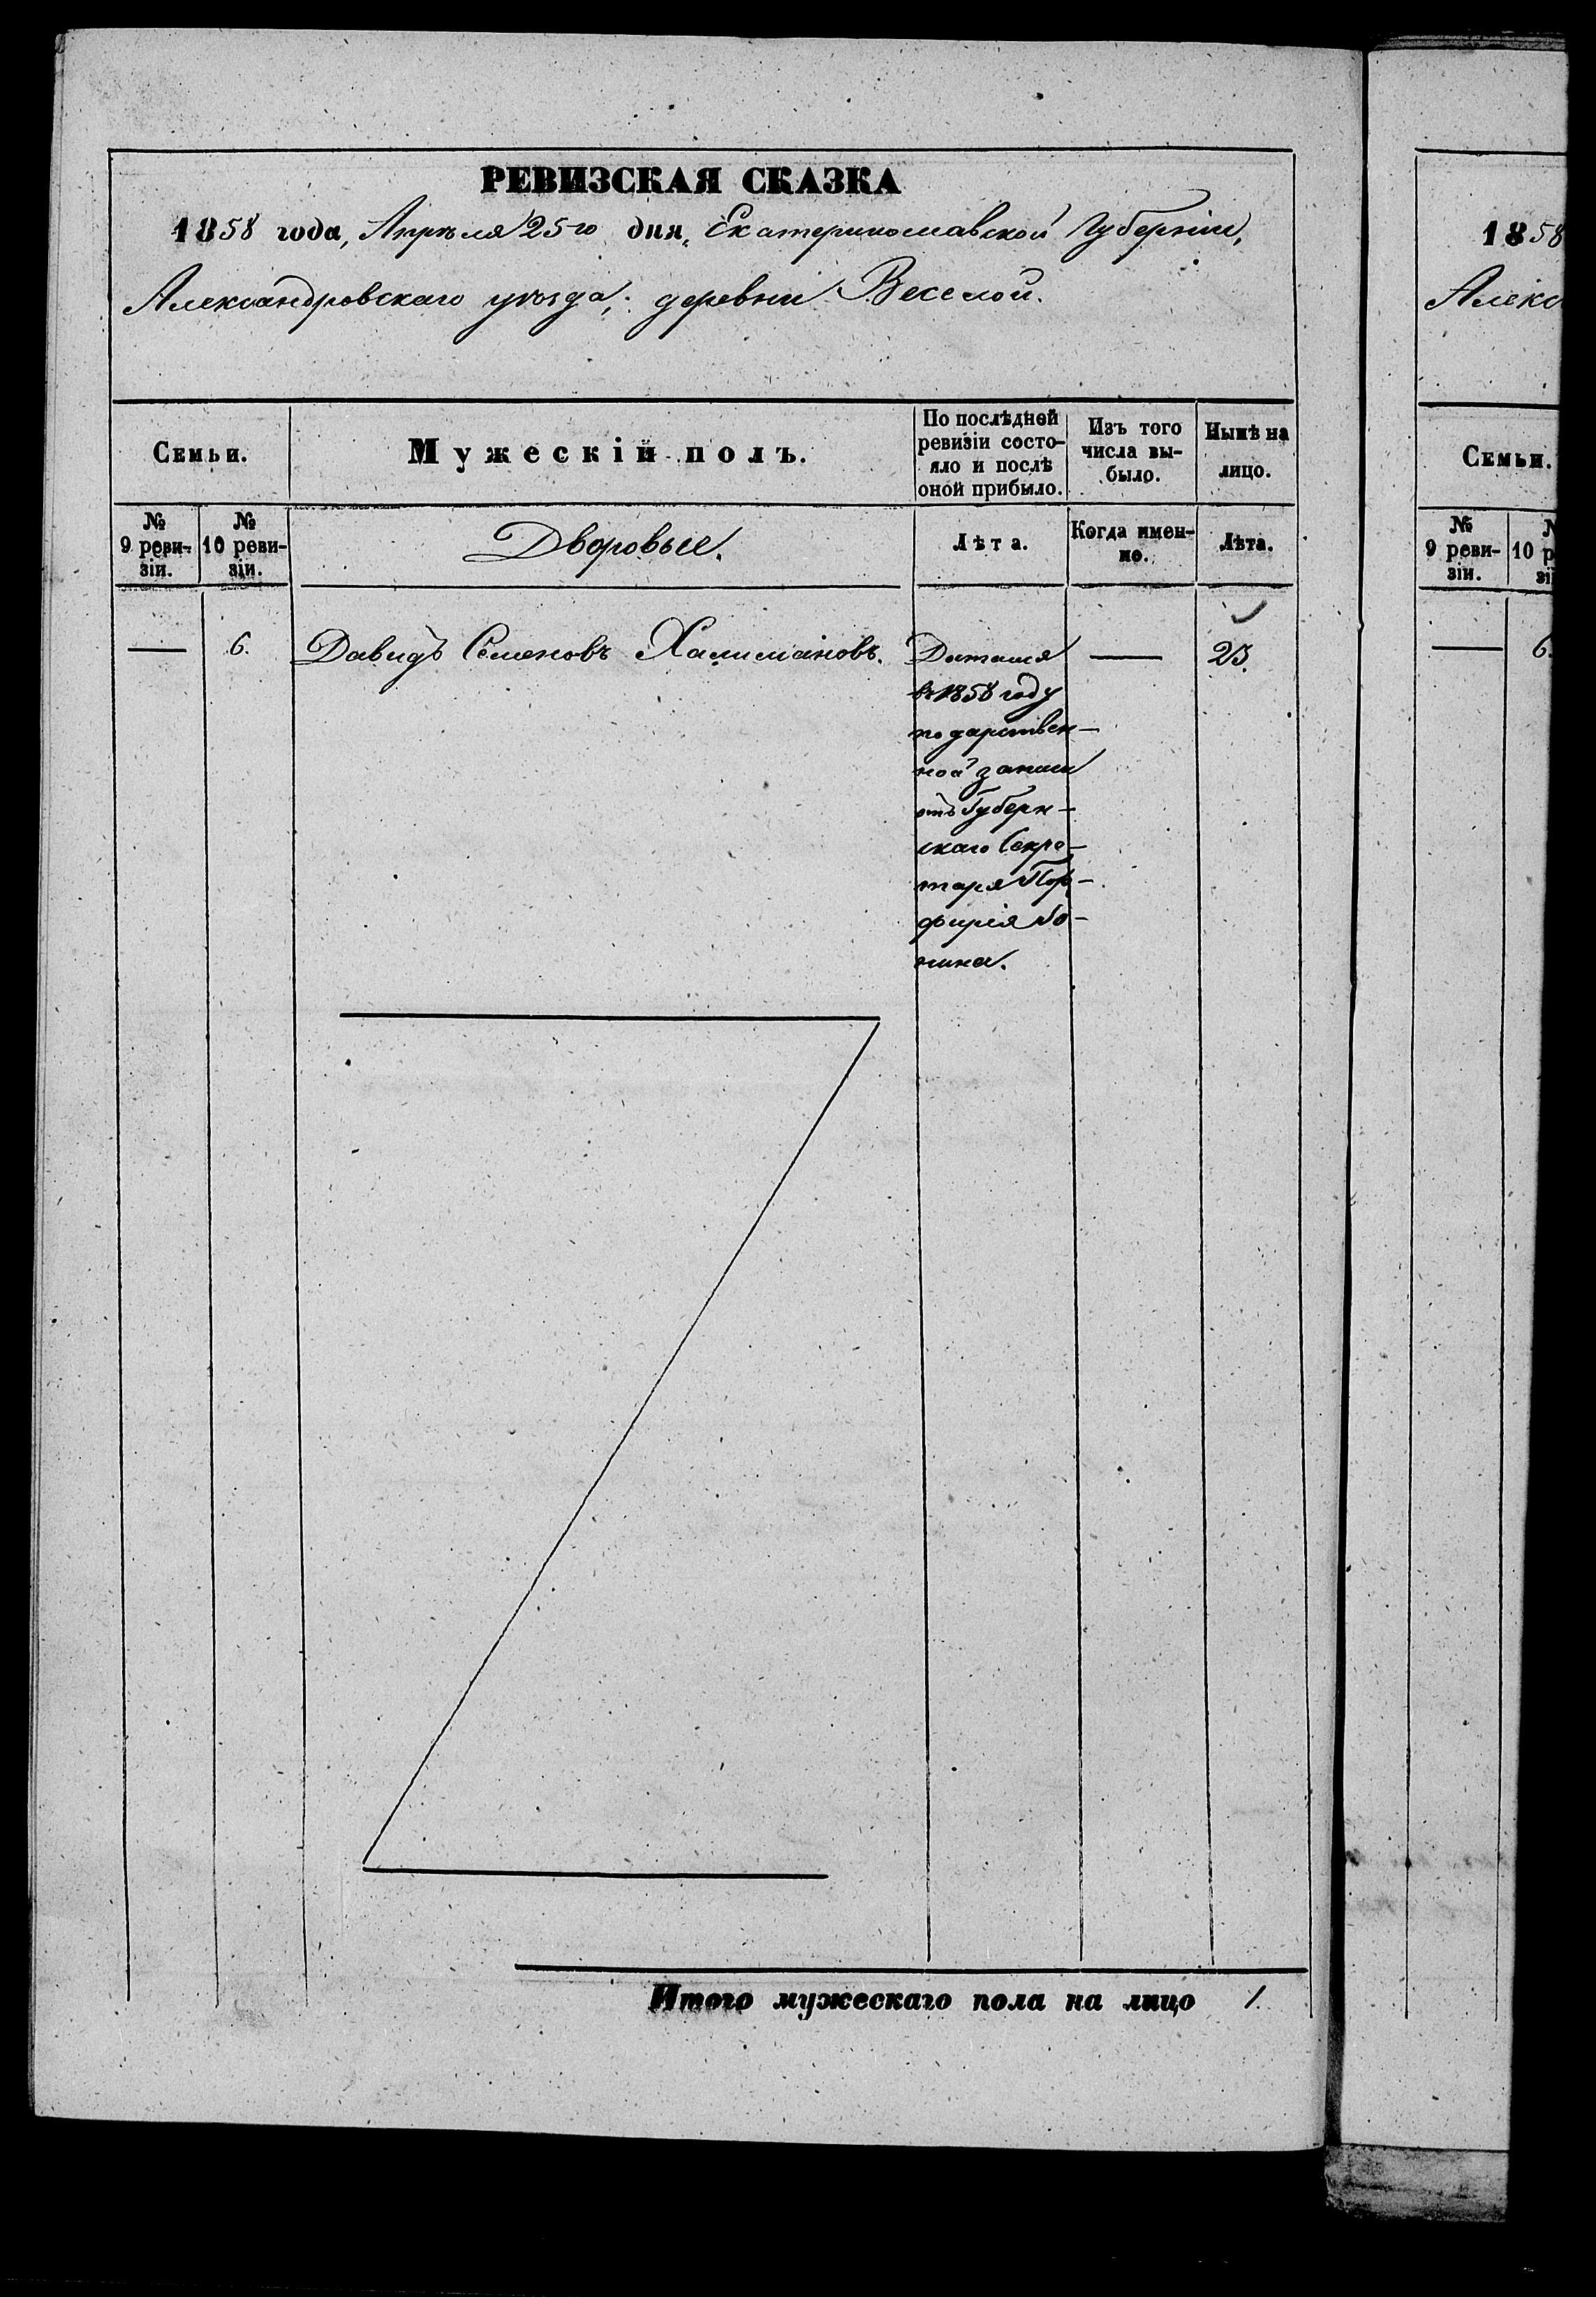 РЕВИЗСКАЯ СКАЗКА
1858 года, Апрѣля 25-го дня, Екатеринославской Губерніи,
Александровскаго уѣзда, деревни Веселой.
Семьи.
Мужескій полъ.
По послѣдней
ревизіи состо-
яло и послѣ
оной прибыло.
Изъ того
числа вы-
было.
Нынѣ на
лицо.
№
9 реви-
зіи.
№
10 реви-
зіи.
Дворовые.
Лѣта.
Когда имен-
но.
Лѣта.
— 6. Давидъ Семеновъ Халимановъ. — 23.
Достался
въ 1858 году
по дарствен-
ной записи
отъ Губерн-
скаго Секре-
таря Пор-
фирія
Итого мужескаго пола на лицо 1.
1858
Алекс
Семьи.
№
9 реви-
зіи.
№
10 р
зіи
— 6.